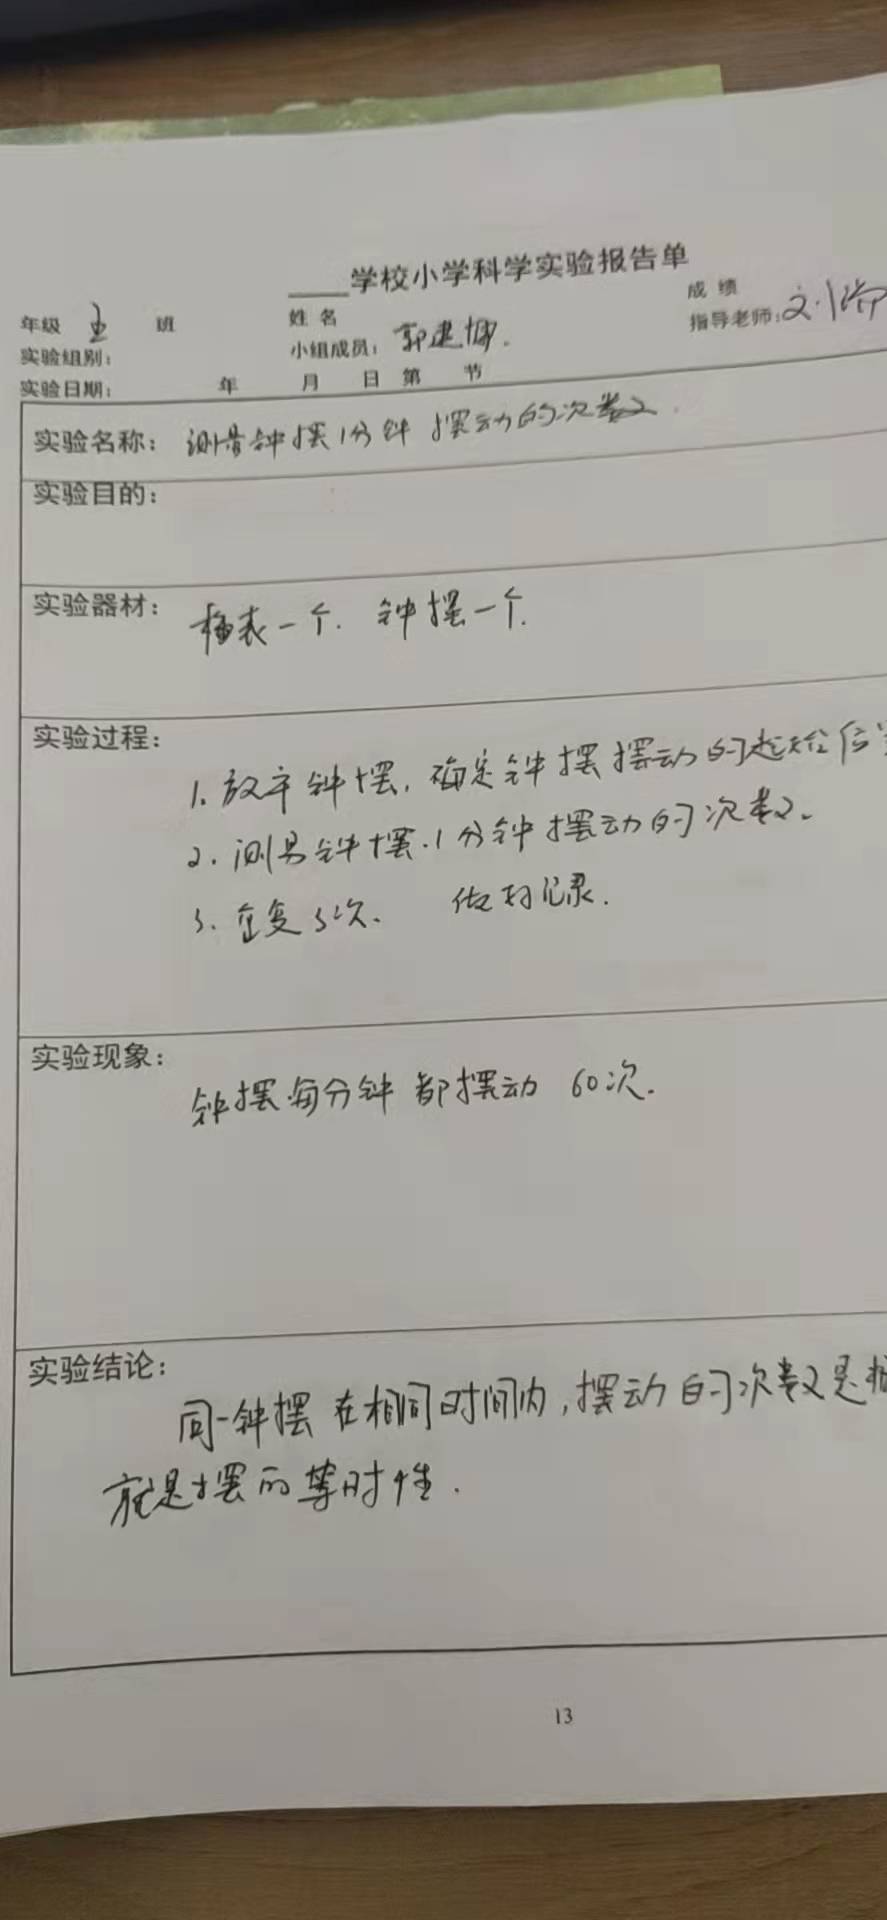 ____学校小学科学实验报告单
年级 五 班 姓名 成绩
实验组别： 小组成员：郭建 指导老师：文
实验日期： 年 月 日 第 节
实验名称：测量钟摆1分钟摆动的次数.
实验目的：
实验器材：
表一个. 钟摆一个.
实验过程：
1. 放牢钟摆，确定钟摆摆动的起始位
2. 测另钟摆.1分钟摆动的次数.
3. 重复3次. 做好记录.
实验现象：
钟摆每分钟都摆动 60次.
实验结论：
同一钟摆在相同时间内，摆动的次数是
就是摆的等时性.
13